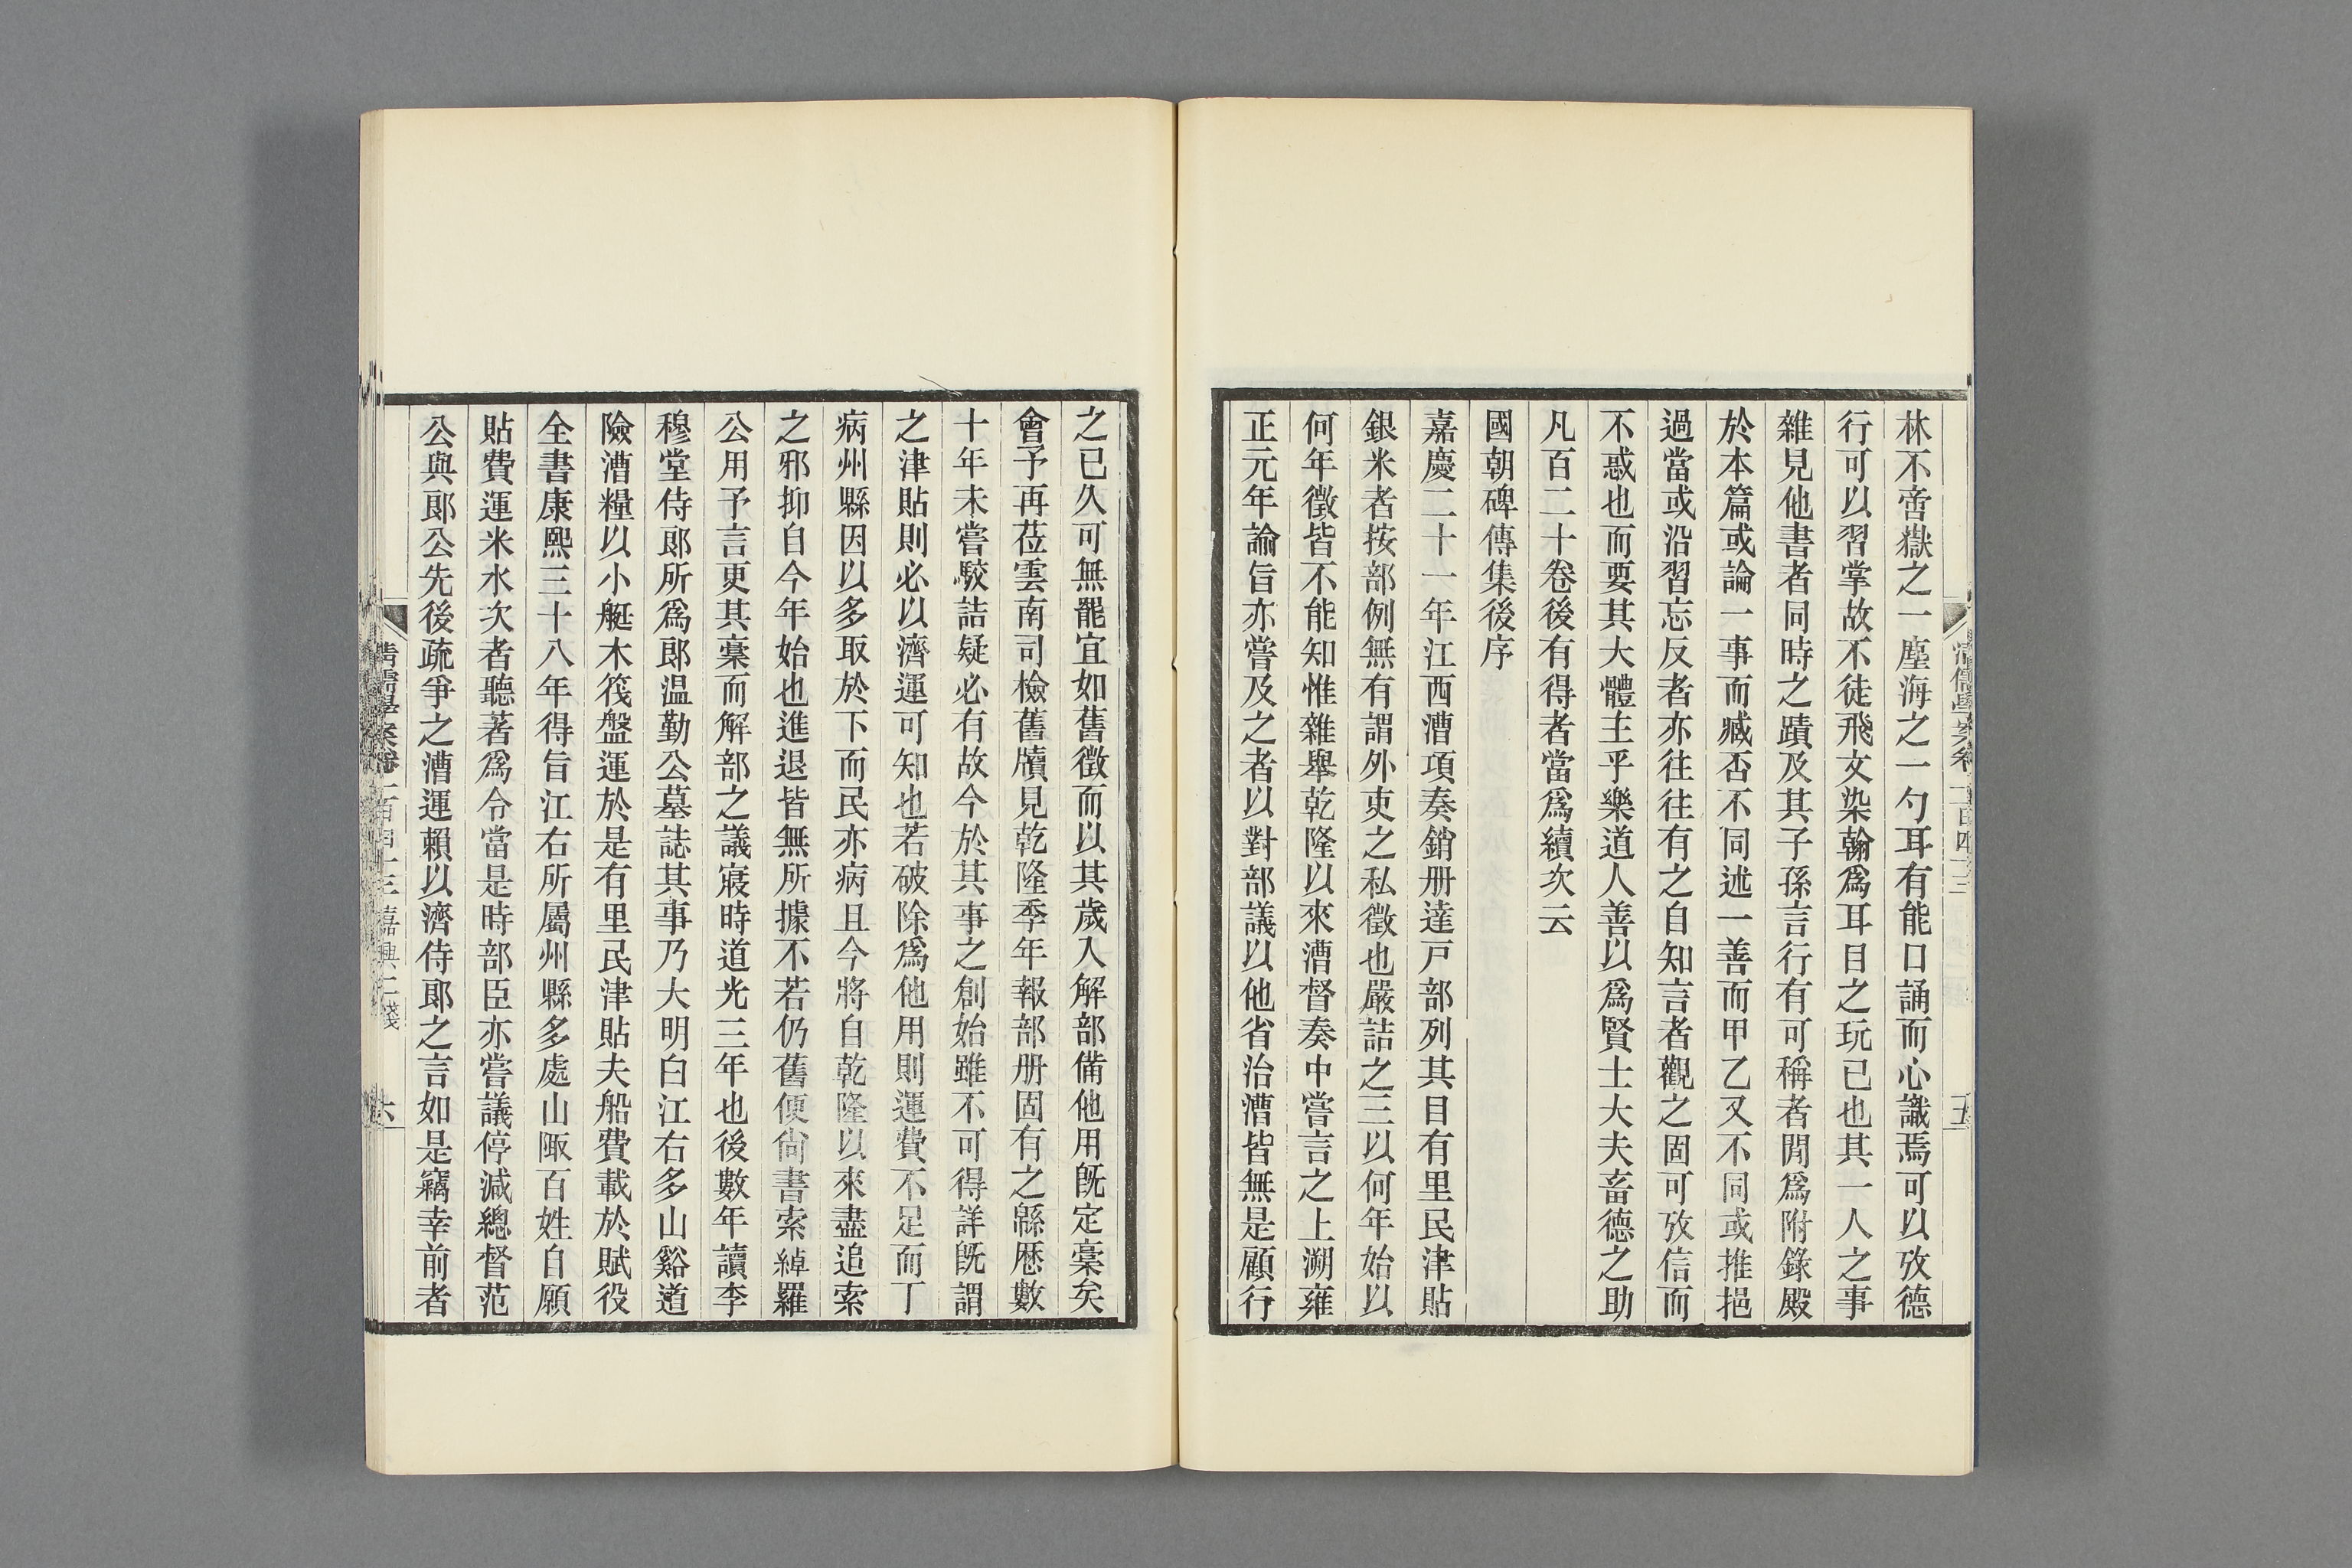 林不啻嶽之一塵海之一勺耳有能口誦而心識焉可以攷德
行可以習掌故不徒飛文染翰爲耳目之玩已也其一人之事
雜見他書者同時之蹟及其子孫言行有可稱者閒爲附錄殿
於本篇或論一事而臧否不同述一善而甲乙又不同或推挹
過當或沿習忘反者亦往往有之自知言者觀之固可攷信而
不惑也而要其大體主乎樂道人善以爲賢士大夫畜德之助
凡百二十卷後有得者當爲續次云
國朝碑傳集後序
嘉慶二十一年江西漕項奏銷册達戸部列其目有里民津貼
銀米者按部例無有謂外吏之私徵也嚴詰之三以何年始以
何年徵皆不能知惟雜舉乾隆以來漕督奏中嘗言之上溯雍
正元年論旨亦嘗及之者以對部議以他省治漕皆無是顧行
之已久可無罷宜如舊徵而以其歲入解部備他用旣定稾矣
會予再莅雲南司檢舊牘見乾隆季年報部册固有之緜歷數
十年未嘗駮詰疑必有故今於其事之創始雖不可得詳旣謂
之津貼則必以濟運可知也若破除爲他用則運費不足而丁
病州縣因以多取於下而民亦病且今將自乾隆以來盡追索
之邪抑自今年始也進退皆無所據不若仍舊便尙書索綽羅
公用予言更其稾而解部之議寢時道光三年也後數年讀李
穆堂侍郞所爲郞温勤公墓誌其事乃大明白江右多山谿道
險漕糧以小艇木筏盤運於是有里民津貼夫船費載於賦役
全書康熙三十八年得旨江右所屬州縣多處山陬百姓自願
貼費運米水次者聽著爲令當是時部臣亦嘗議停減總督范
公與郞公先後疏爭之漕運賴以濟侍郞之言如是竊幸前者
清儒學案卷一百四十三 嘉興二錢 六